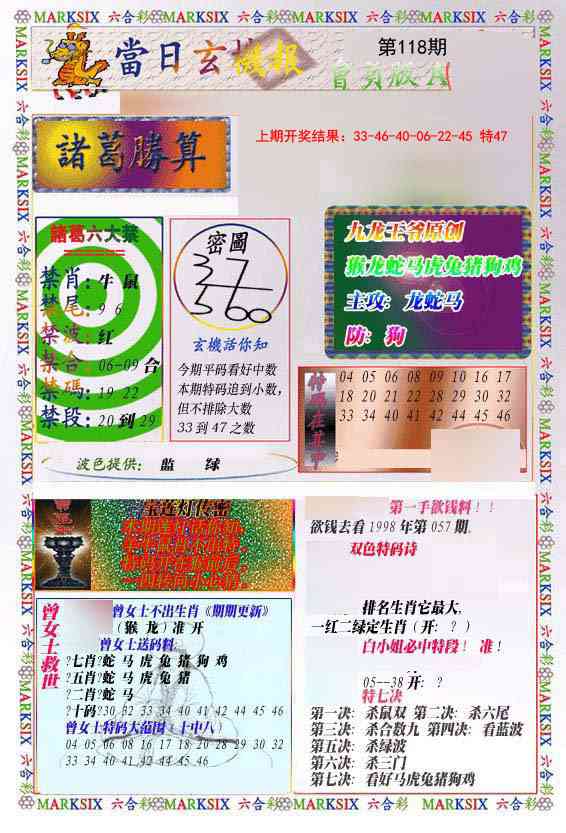 MARKSIX 六合彩 MARKSIX 六合彩 MARKSIX 六合彩 MARKSIX 六合彩
當日玄機報
第118期
上期开奖结果：33-46-40-06-22-45 特47
諸葛勝算
諸葛六大禁
禁肖：牛 鼠
禁尾：9 6
禁波：红
禁合：06-09 合
禁碼：19 22
禁段：20 到 29
密圖
37
玄機活你知
今期平码看好中数
本期特码追到小数，
但不排除大数
33 到 47 之数
九龙王爷原创
猴龙蛇马虎兔猪狗鸡
主攻：龙蛇马
防：狗
特碼在其中
04 05 06 08 09 10 16 17
18 20 21 22 28 29 31 32
33 34 40 41 42 44 45 46
波色提供： 蓝 绿
宝莲灯传密
第一手欲钱料！！
欲钱去看 1998 年第 057 期.
双色特码诗
排名生肖它最大,
一红二绿定生肖（开：？）
白小姐必中特段！ 准！
05--38 开：？
特七决
第一决：杀鼠双 第二决：杀六尾
第三决：杀合数九 第四决：看蓝波
第五决：杀绿波
第六决：杀三门
第七决：看好马虎兔猪狗鸡
曾女士救世
曾女士不出生肖《期期更新》
（猴 龙）准 开
曾女士送码料
?七肖?蛇 马 虎 兔 猪 狗 鸡
?五肖?蛇 马 虎 兔 猪
?二肖?蛇 马
?十码?30 32 33 34 40 41 42 44 45 46
曾女士特码大范围（十中八）
04 05 06 08 16 17 18 20 28 29 30 32
33 34 40 41 42 44 45 46
MARKSIX 六合彩 MARKSIX 六合彩 MARKSIX 六合彩 MARKSIX 六合彩